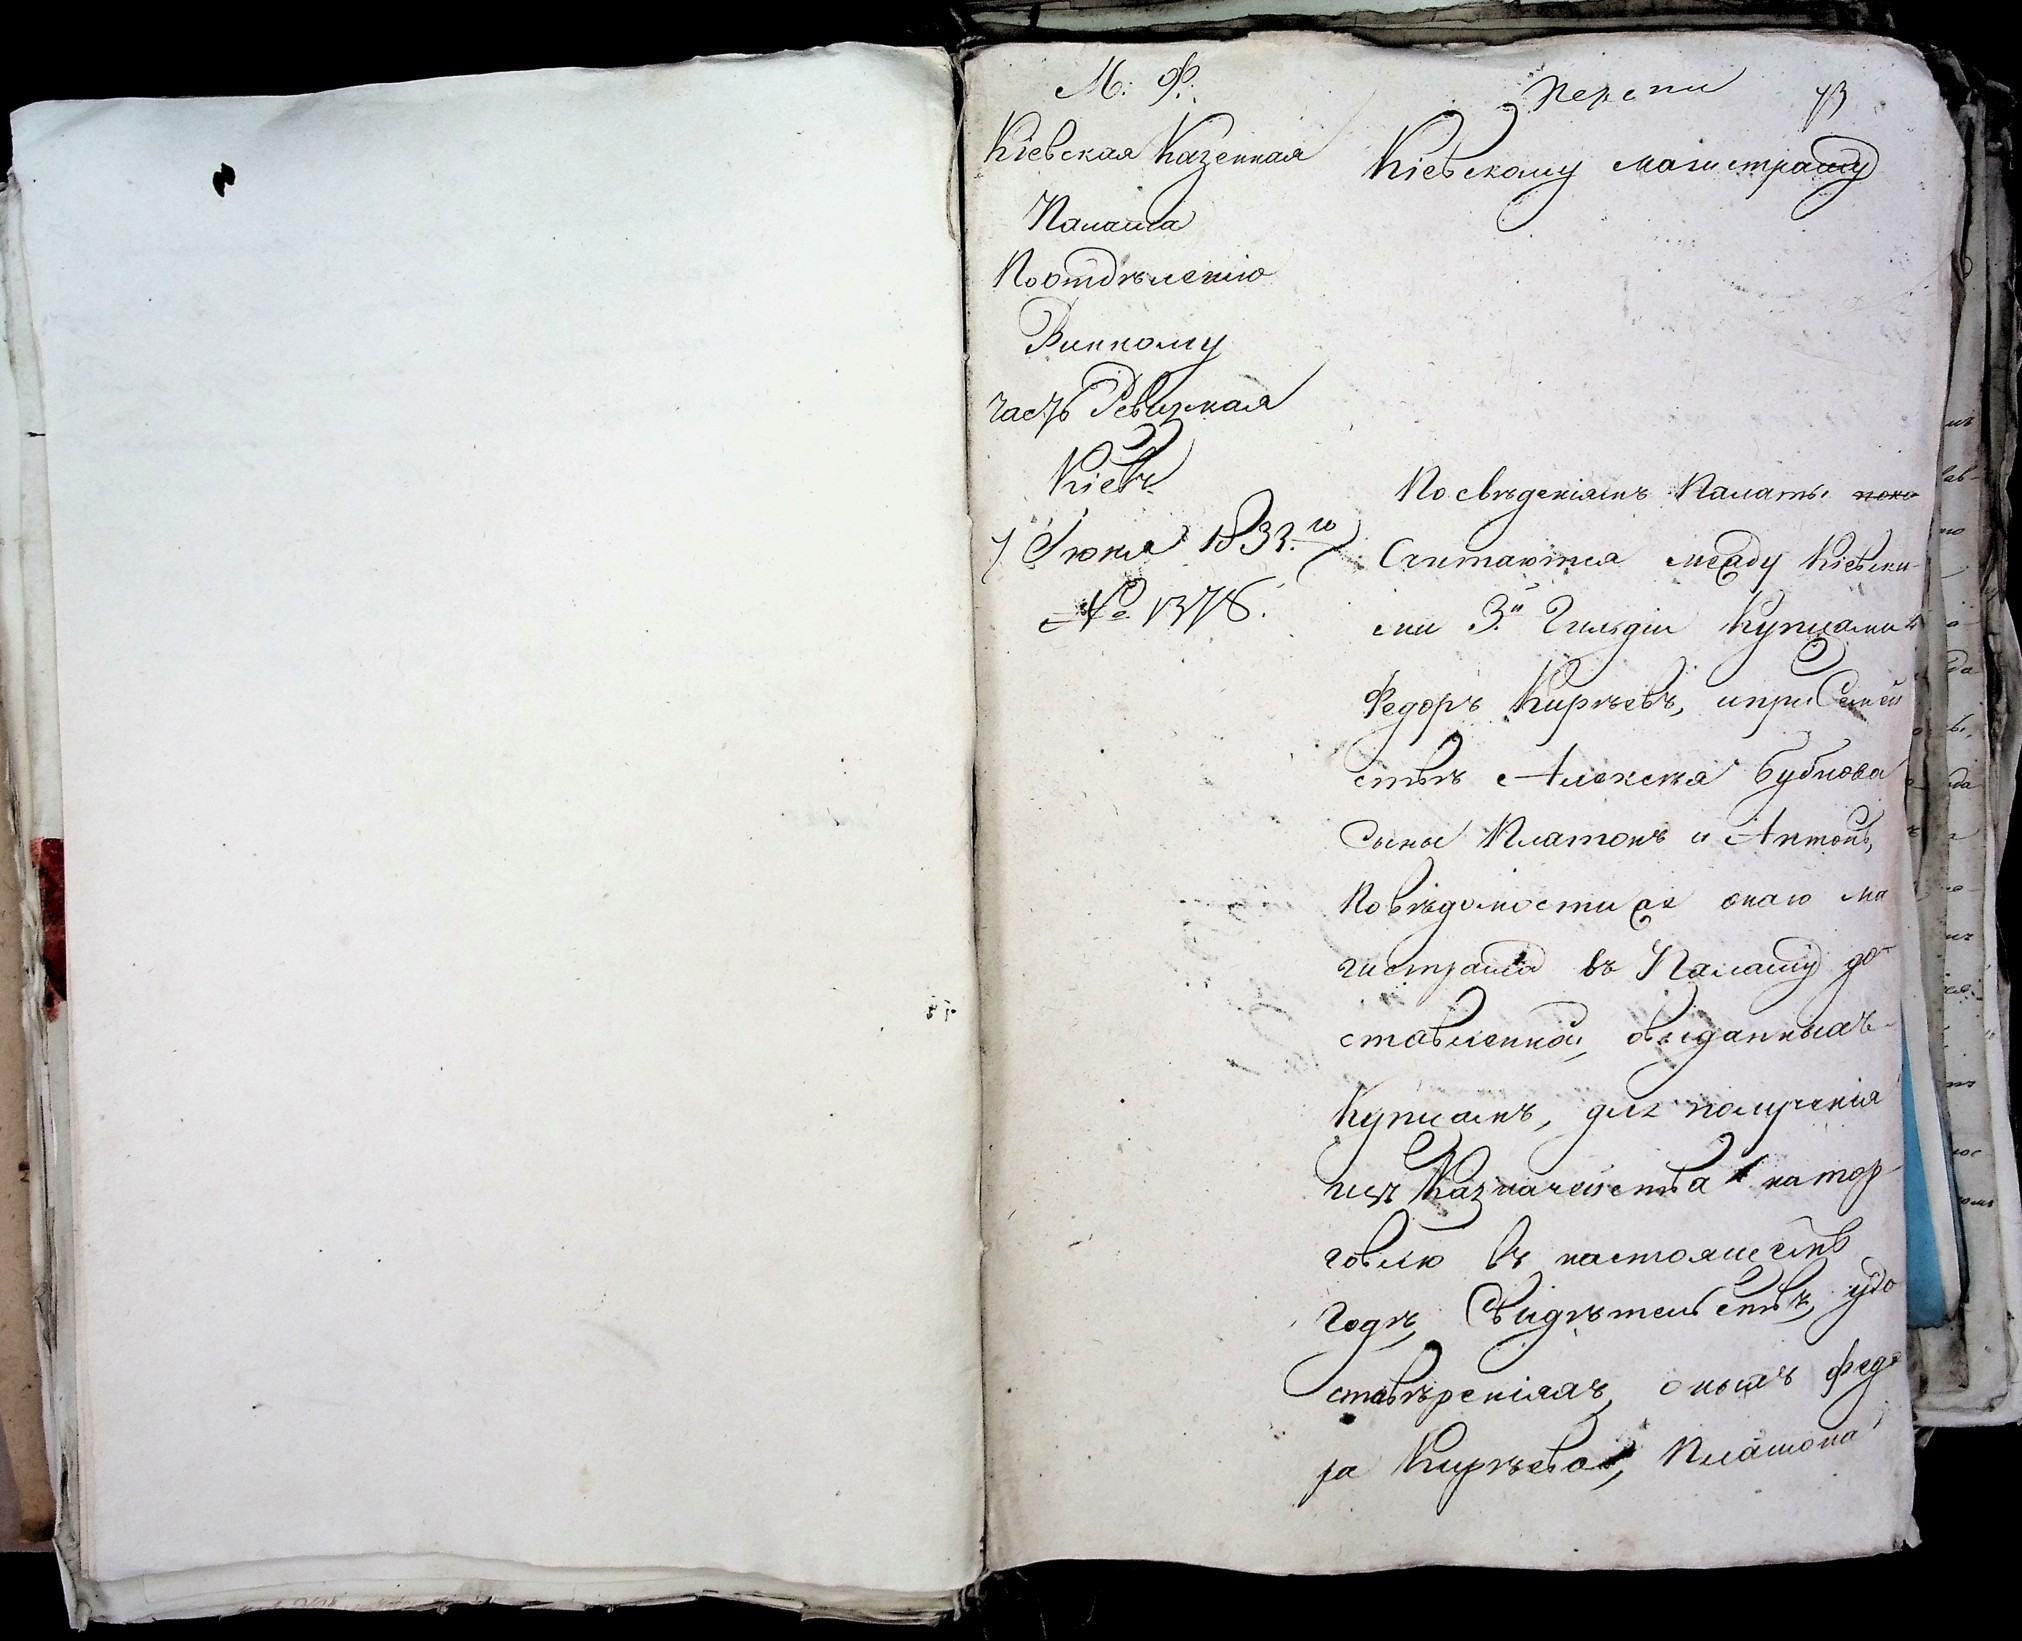 М: Ф.
Кіевская Казенная
Палата
По отдѣленію
Винному
часть Ревизкая
Кіевъ
7 Іюня 1833.го
№ 1378.
73
Кіевскому магистрату
По свѣденіямъ Палаты
Считаются между Кіевски-
ми 3.й Гильдіи Купцами
Федоръ Кирѣевъ, и при Семей
ствѣ Алексѣя Бубнова
Сыны Платонъ и Антонъ,
По вѣдомости изъ онаго ма
гистрата въ Палату до-
ставленной, овыданныхъ
Купцамъ, для полученія
изъ Казначейства на тор-
говлю въ настоящемъ
годѣ, Свидѣтельствъ, удо
ствѣреніяхъ, оныхъ Федо
ра Кирѣева, Платона